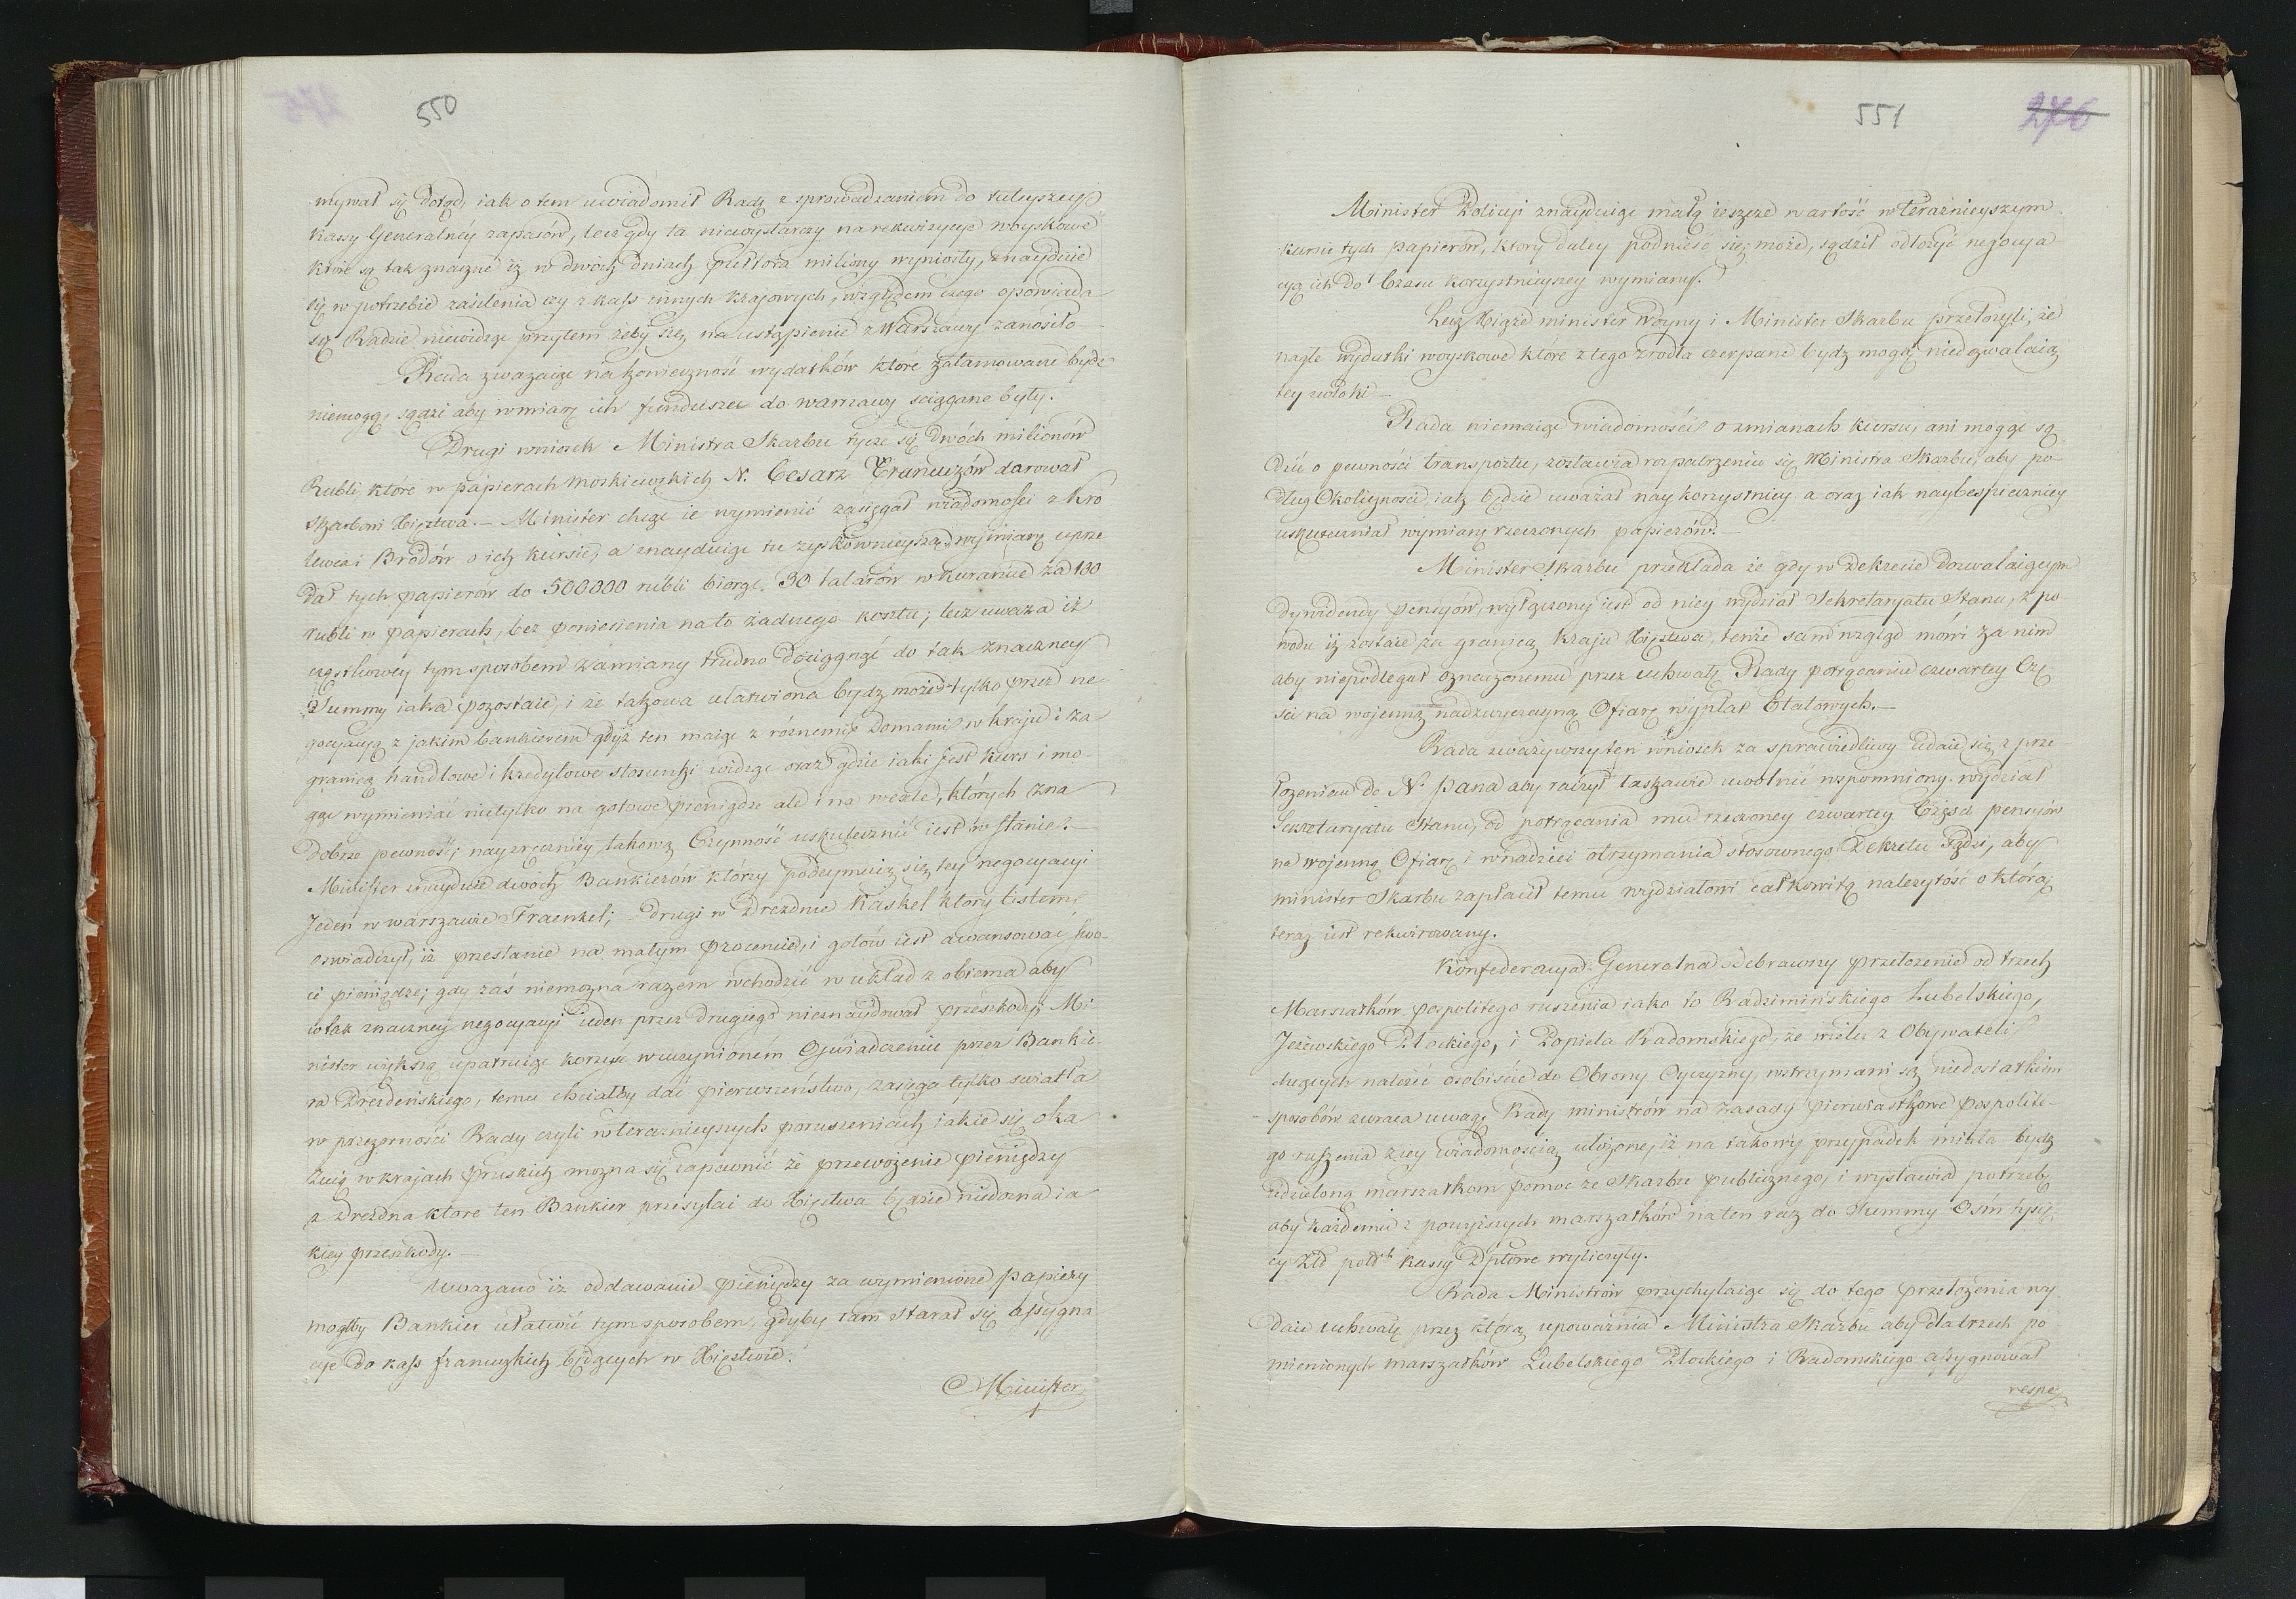 550
mywał się dotąd, iak o tem uwiadomił Radę z sprowadzaniem do tuteyszey
kassy Generalnéy zapasów, lecz gdy ta niewystarczy na rekwizycye woyskowe
które są tak znaczne iż w dwóch dniach półtora miliony wyniosły, znaydzie
się w potrzebie zasilenia iey z kass innych krajowych, względem czego opowiada
się Radzie niewidząc przytem żeby się na ustąpienie z Warszawy zanosiło
Rada zważaiąc na konieczność wydatków które zatamowane bydź
niemogą, sądzi aby w miarę ich fundusze do warszawy sciągane były.
Drugi wniosek Ministra Skarbu tycze się dwóch milionów
Rubli, które w papierach Moskiewskich N. Cesarz Francuzów darował
Skarbowi Xięztwa. — Minister chcąc ie wymienić zasięgał wiadomości z Kró
lewca i Brodów o ich kursie, a znayduiąc tu zyskownieyszą wymianę uprze
dał tych papierów do 500000 rubli biorąc 30 talarów w kurancie za 100
rubli w papierach, bez poniesienia na to żadnego kosztu; lecz uważa iż
cząstkowey tym sposobem zamiany trudno dociągnąć do tak znaczney
Summy iaka pozostaie, i że takowa ułatwiona bydź może tylko przez ne
gocyacyą z jakim bankierem gdyż ten maiąc z różnemi Domami w kraju i za
granicą handlowe i kredytowe stosunki widząc oraz gdzie iaki jest kurs i mo-
gąc wymieniać nietylko na gotowe pieniądze ale i na wexle, których zna
dobrze pewność; nayzręczniey takową Czynność uskutecznić iest w stanie. —
Minister znayduie dwóch Bankierów którzy podeymuią się tey negocyacyi
Jeden w warszawie Fraenkel; drugi w Dreznie Kaskel który listem
oswiadczył, iż przestanie na małym procencie, i gotów iest awansować swo-
ie pieniądze; gdy zaś niemożna razem wchodzić w układ z obiema aby
w tak znaczney negocyacyi ieden przez drugiego nieznaydował przeszkody, Mi-
nister większą upatruiąc korzyść w uczynioném Oświadczeniu przez Bankie-
ra Drezdeńskiego, temu chciałby dać pierwszeństwo, zasięga tylko swiatła
w przezorności Rady czyli w teraznieyszych poruszeniach iakie się oka
zuią w krajach pruskich można się zapewnić że przewożenie pieniędzy
z Drezdna które ten Bankier przesyłać do Xięstwa będzie niedozna ia
kiey przeszkody. —
Uważano iż oddawanie pieniędzy za wymienione papiery
mogłby Bankier ułatwić tym sposobem, gdyby tam starał się assygna
cye do kass francuzkich będących w Xięstwie.
Minister
551
276
Minister Policyi znayduiąc małą ieszcze wartość w teraźnieyszym
kursie tych papierów, który daley podnieść się może, sądził odłożyć negocya
cyą ich do Czasu korzystnieyszey wymiany.
Lecz Xiąże minister Woyny i Minister Skarbu przełożyli, że
nagłe wydatki woyskowe które z tego zrodła czerpane bydź mogą, niedozwalaią
tey zwłoki —
Rada niemaiąc wiadomości o zmianach kursu, ani mogąc są
dzić o pewności transportu, zostawia rozpatrzeniu się Ministra Skarbu, aby po-
dług Okoliczności, iak będzie uważał naykorzystniey a oraz iak naybespieczniey
uskuteczniał wymianę rzeczonych papierów. —
Minister Skarbu przekłada że gdy w Dekrecie dozwalaiącym
dywidendy pensyów, wyłączony iest od niey wydział Sekretaryatu Stanu, z po
wodu iż zostaie za granicą kraju Xięztwa, tenże sam wzgląd mówi za nim
aby niepodlegał oznaczonemu przez uchwałę Rady potrącaniu czwartey Czę
ści na wojenną nadzwyczayną Ofiarę wypłat Etatowych. —
Rada uważywszy ten wniosek za sprawiedliwy udaie się z prze
łożeniem do N. Pana aby raczył łaskawie uwolnić wspomniony wydział
Sekretaryatu Stanu, od potrącania mu rzeczoney czwartey Części pensyów
na wojenną Ofiarę i w nadziei otrzymania stosownego Dekretu sądzi, aby
minister Skarbu zapłacił temu wydziałowi całkowitą należytość o którą
teraz iest rekwirowany.
Konfederacya Generalna odebrawszy przełożenie od trzech
Marszałków pospolitego ruszenia iako to Radzimińskiego Lubelskiego,
Jeżewskiego Płockiego, i Popiela Radomskiego, że wielu z Obywateli
chcących należeć osobiście do Obrony Oyczyzny, wstrzymani są niedostatkiem
sposobów zwraca uwagę Rady ministrów na zasady pierwiastkowe pospolite-
go ruszenia z iey wiadomością ułożone, iż na takowy przypadek miała bydź
udzieloną marszałkom pomoc ze Skarbu publicznego, i wystawia potrzebę
aby każdemu z powyższych marszałków na ten raz do Summy Ośm tysię
cy Złł polsch kassy Dptowe wyliczyły.
Rada Ministrów przychylaiąc się do tego przełożenia wy
daie uchwałę przez którą upoważnia Ministra Skarbu aby dla trzech po
mienionych marszałków Lubelskiego Płockiego i Radomskiego assygnował
respe